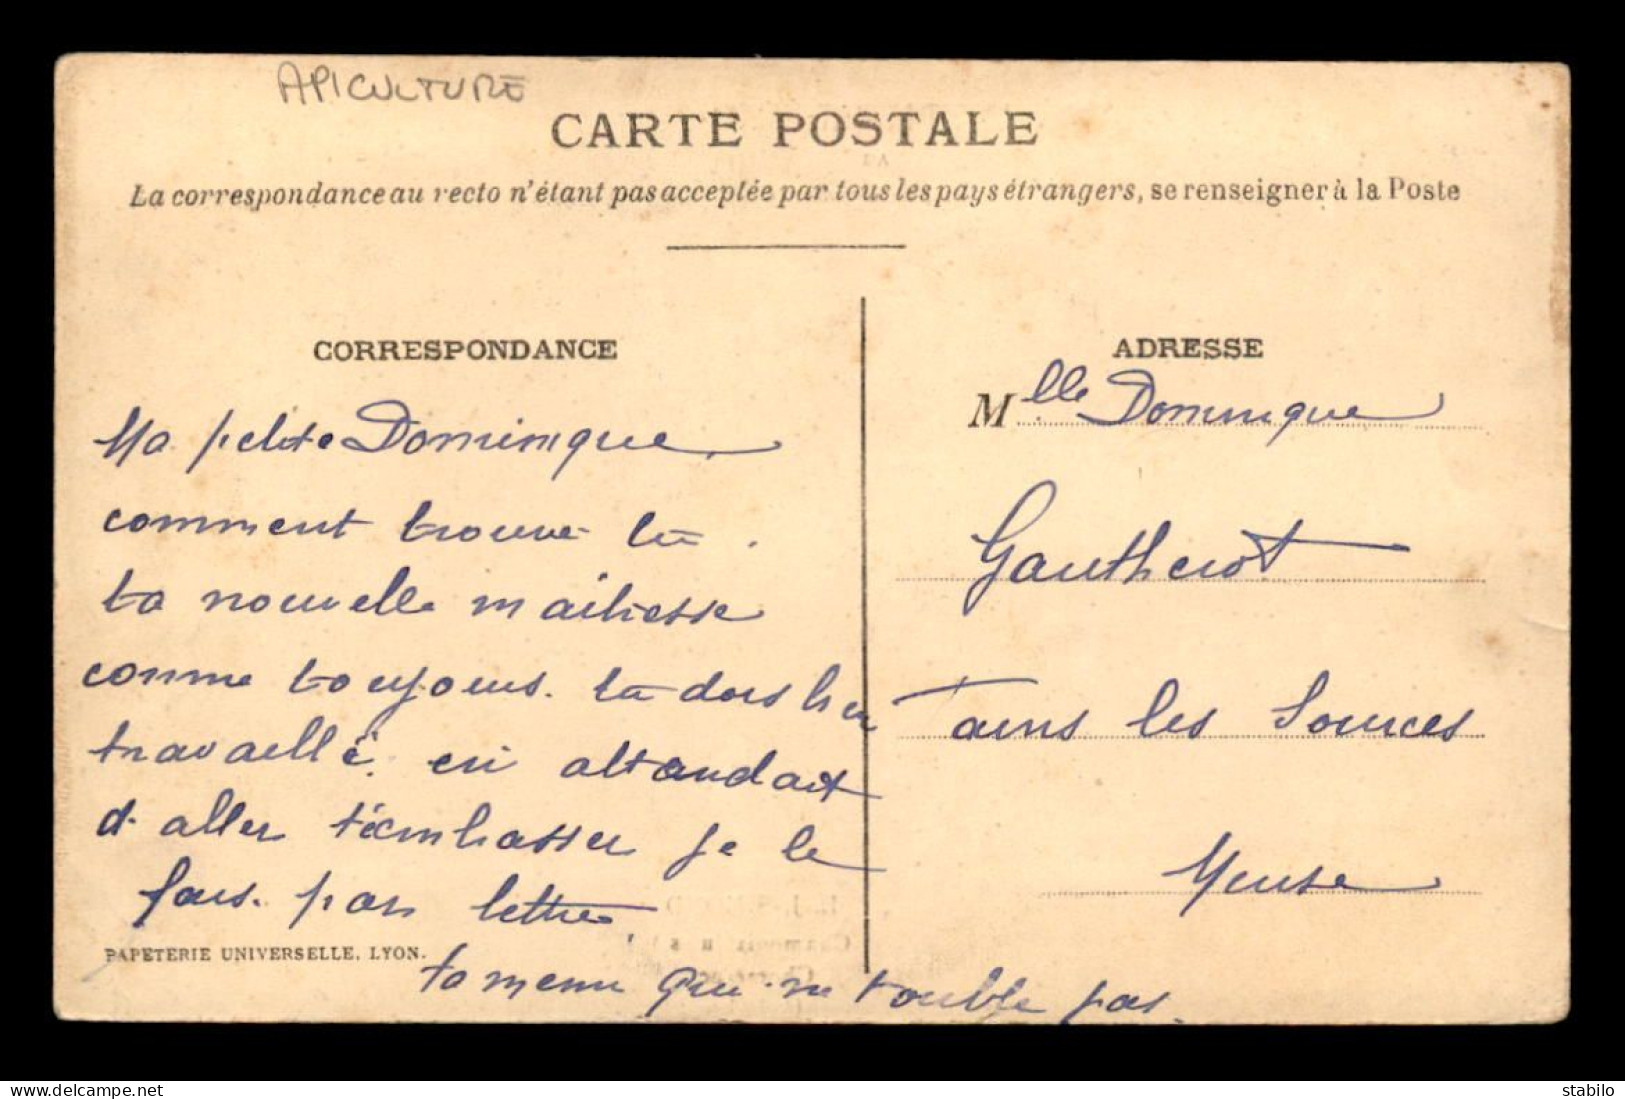 APICULTURE
CARTE POSTALE
La correspondance au recto n'étant pas acceptée par tous les pays étrangers, se renseigner à la Poste
CORRESPONDANCE
Ma petite Dominique
comment trouve tu
ta nouvelle maitresse
comme toujours. tu dois bien
travaillé. en attandant
d aller t'émbasser je le
fais. par lettre
ta memé qui ne t'oublie pas.
PAPETERIE UNIVERSELLE, LYON.
ADRESSE
Mlle Dominique
Gautherot
les Sources
Meuse
delcampe.net
stabilo